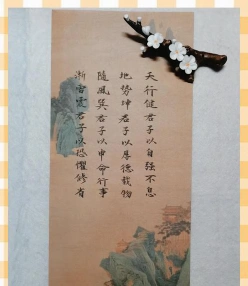 天行健君子以自强不息
地势坤君子以厚德载物
随风巽君子以申命行事
洊雷震君子以恐惧修省